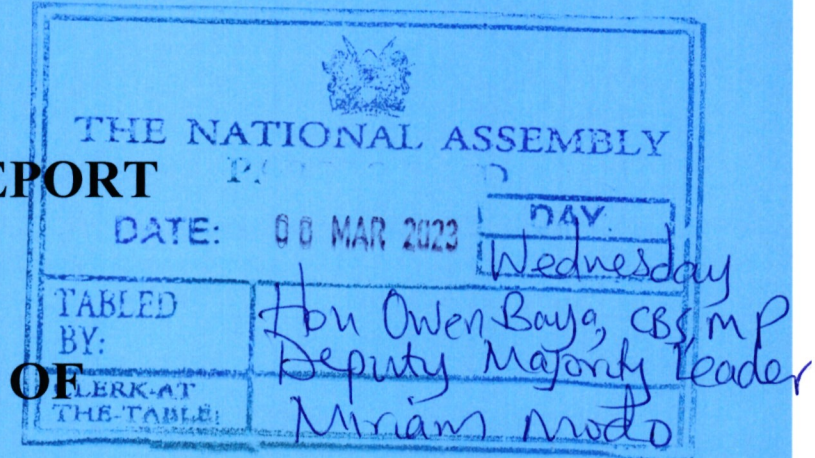 THE NATIONAL ASSEMBLY
EPORT
DATE: 08 MAR 2023 DAY.
Wednesday
TABLED BY: Hon Owen Baya, CBS MP
Deputy Majority Leader
OF
CLERK-AT THE-TABLE: Miriam Modo